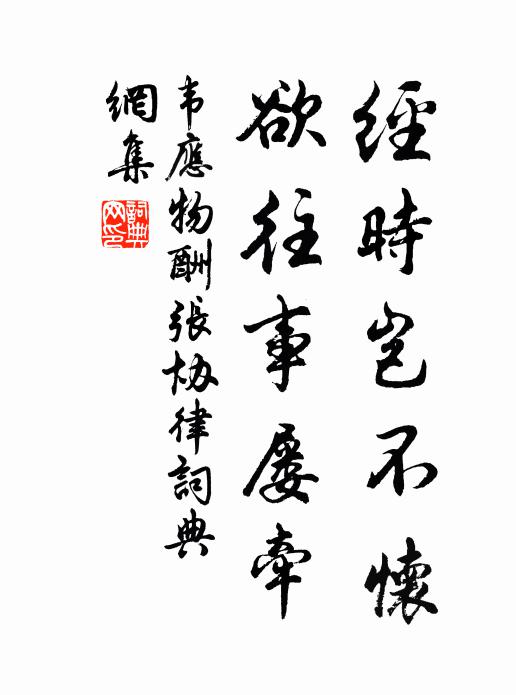 經時豈不懷
欲往事屡牽
韦應物酬張协律詞典
網集
詞典
网印